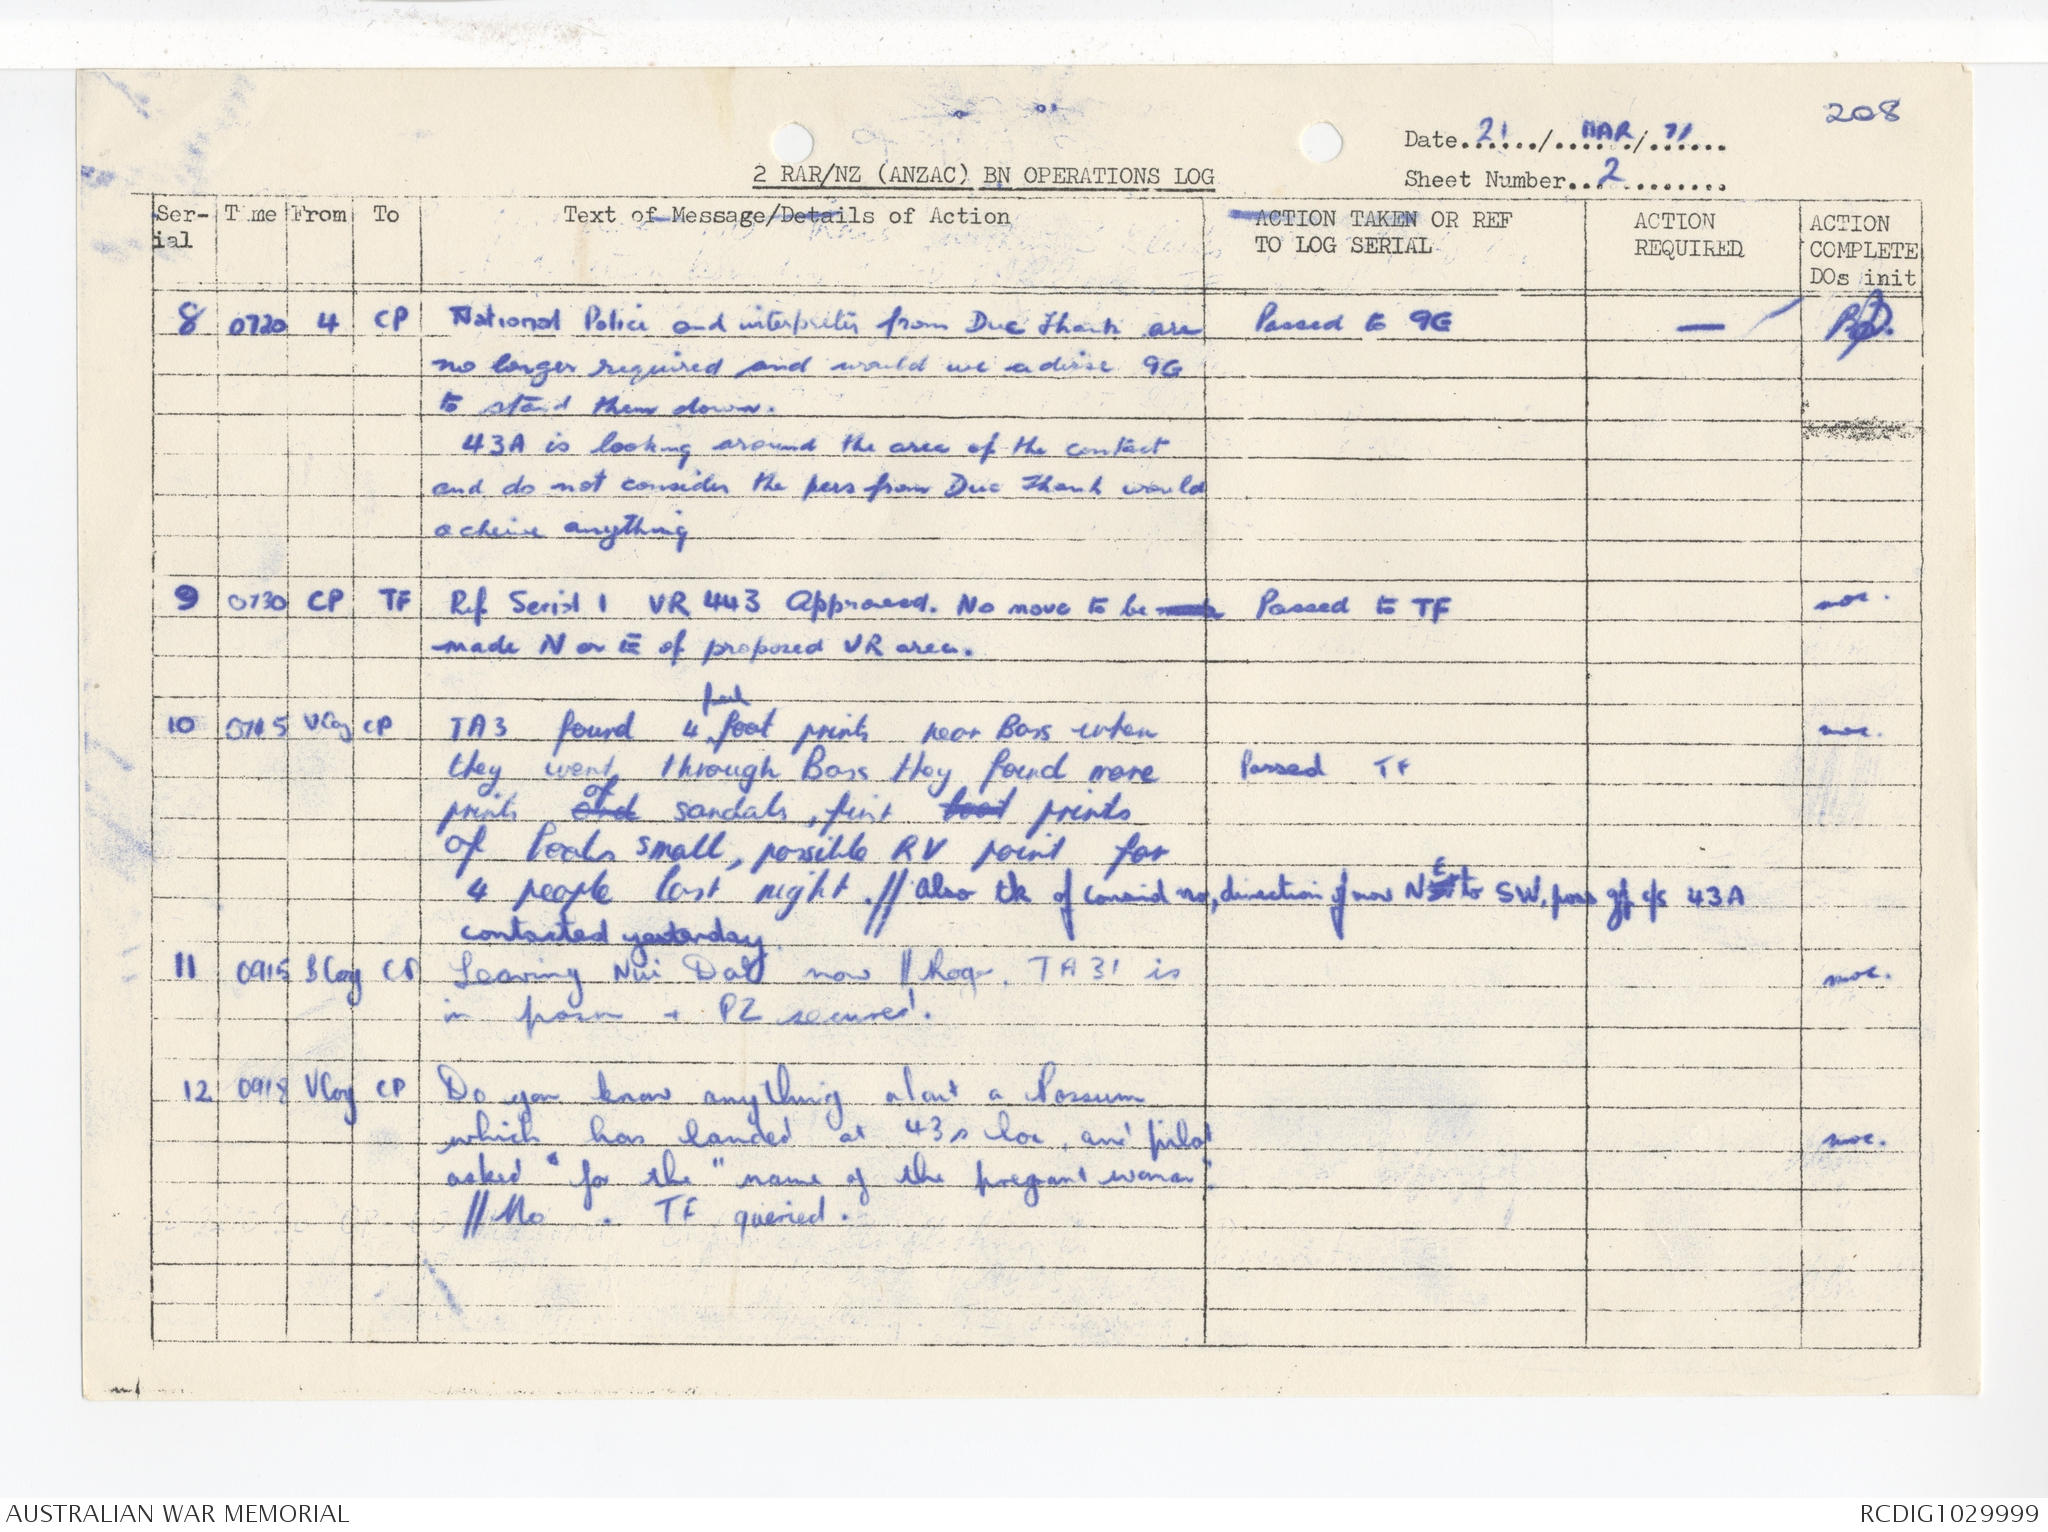 208
Date 21 / MAR / 71
Sheet Number 2
2 RAR/NZ (ANZAC) BN OPERATIONS LOG
Ser-ial Time From To Text of Message/Details of Action ACTION TAKEN OR REF TO LOG SERIAL ACTION REQUIRED ACTION COMPLETE DOs init
8 0720 4 CP National Police and interpreter from Duc Thanh are Passed to 9G —
no longer required and would we advise 9G
to stand them down.
43A is looking around the area of the contact
and do not consider the pers from Duc Thanh would
acheive anything
9 0730 CP TF Ref Serial 1 VR 443 Approved. No move to be Passed to TF
made N or E of proposed VR area.
10 VCoy CP TA3 found 4 foot prints near Bass when
they went through Bass they found more Passed TF
prints of sandals, first foot prints
of small, possible RV point for
4 people last night. // Also tk of consid no, direction of mov NE to SW, poss gp c/s 43A
contacted yesterday.
11 0915 BCoy CP Leaving Nui Dat now // Roger. TA31 is
in posn + PZ secured.
12 0918 VCoy CP Do you know anything about a Possum
which has landed at 43s loc, and pilot
asked "for the "name of the pregnant woman".
// No. TF queried.
AUSTRALIAN WAR MEMORIAL
RCDIG1029999